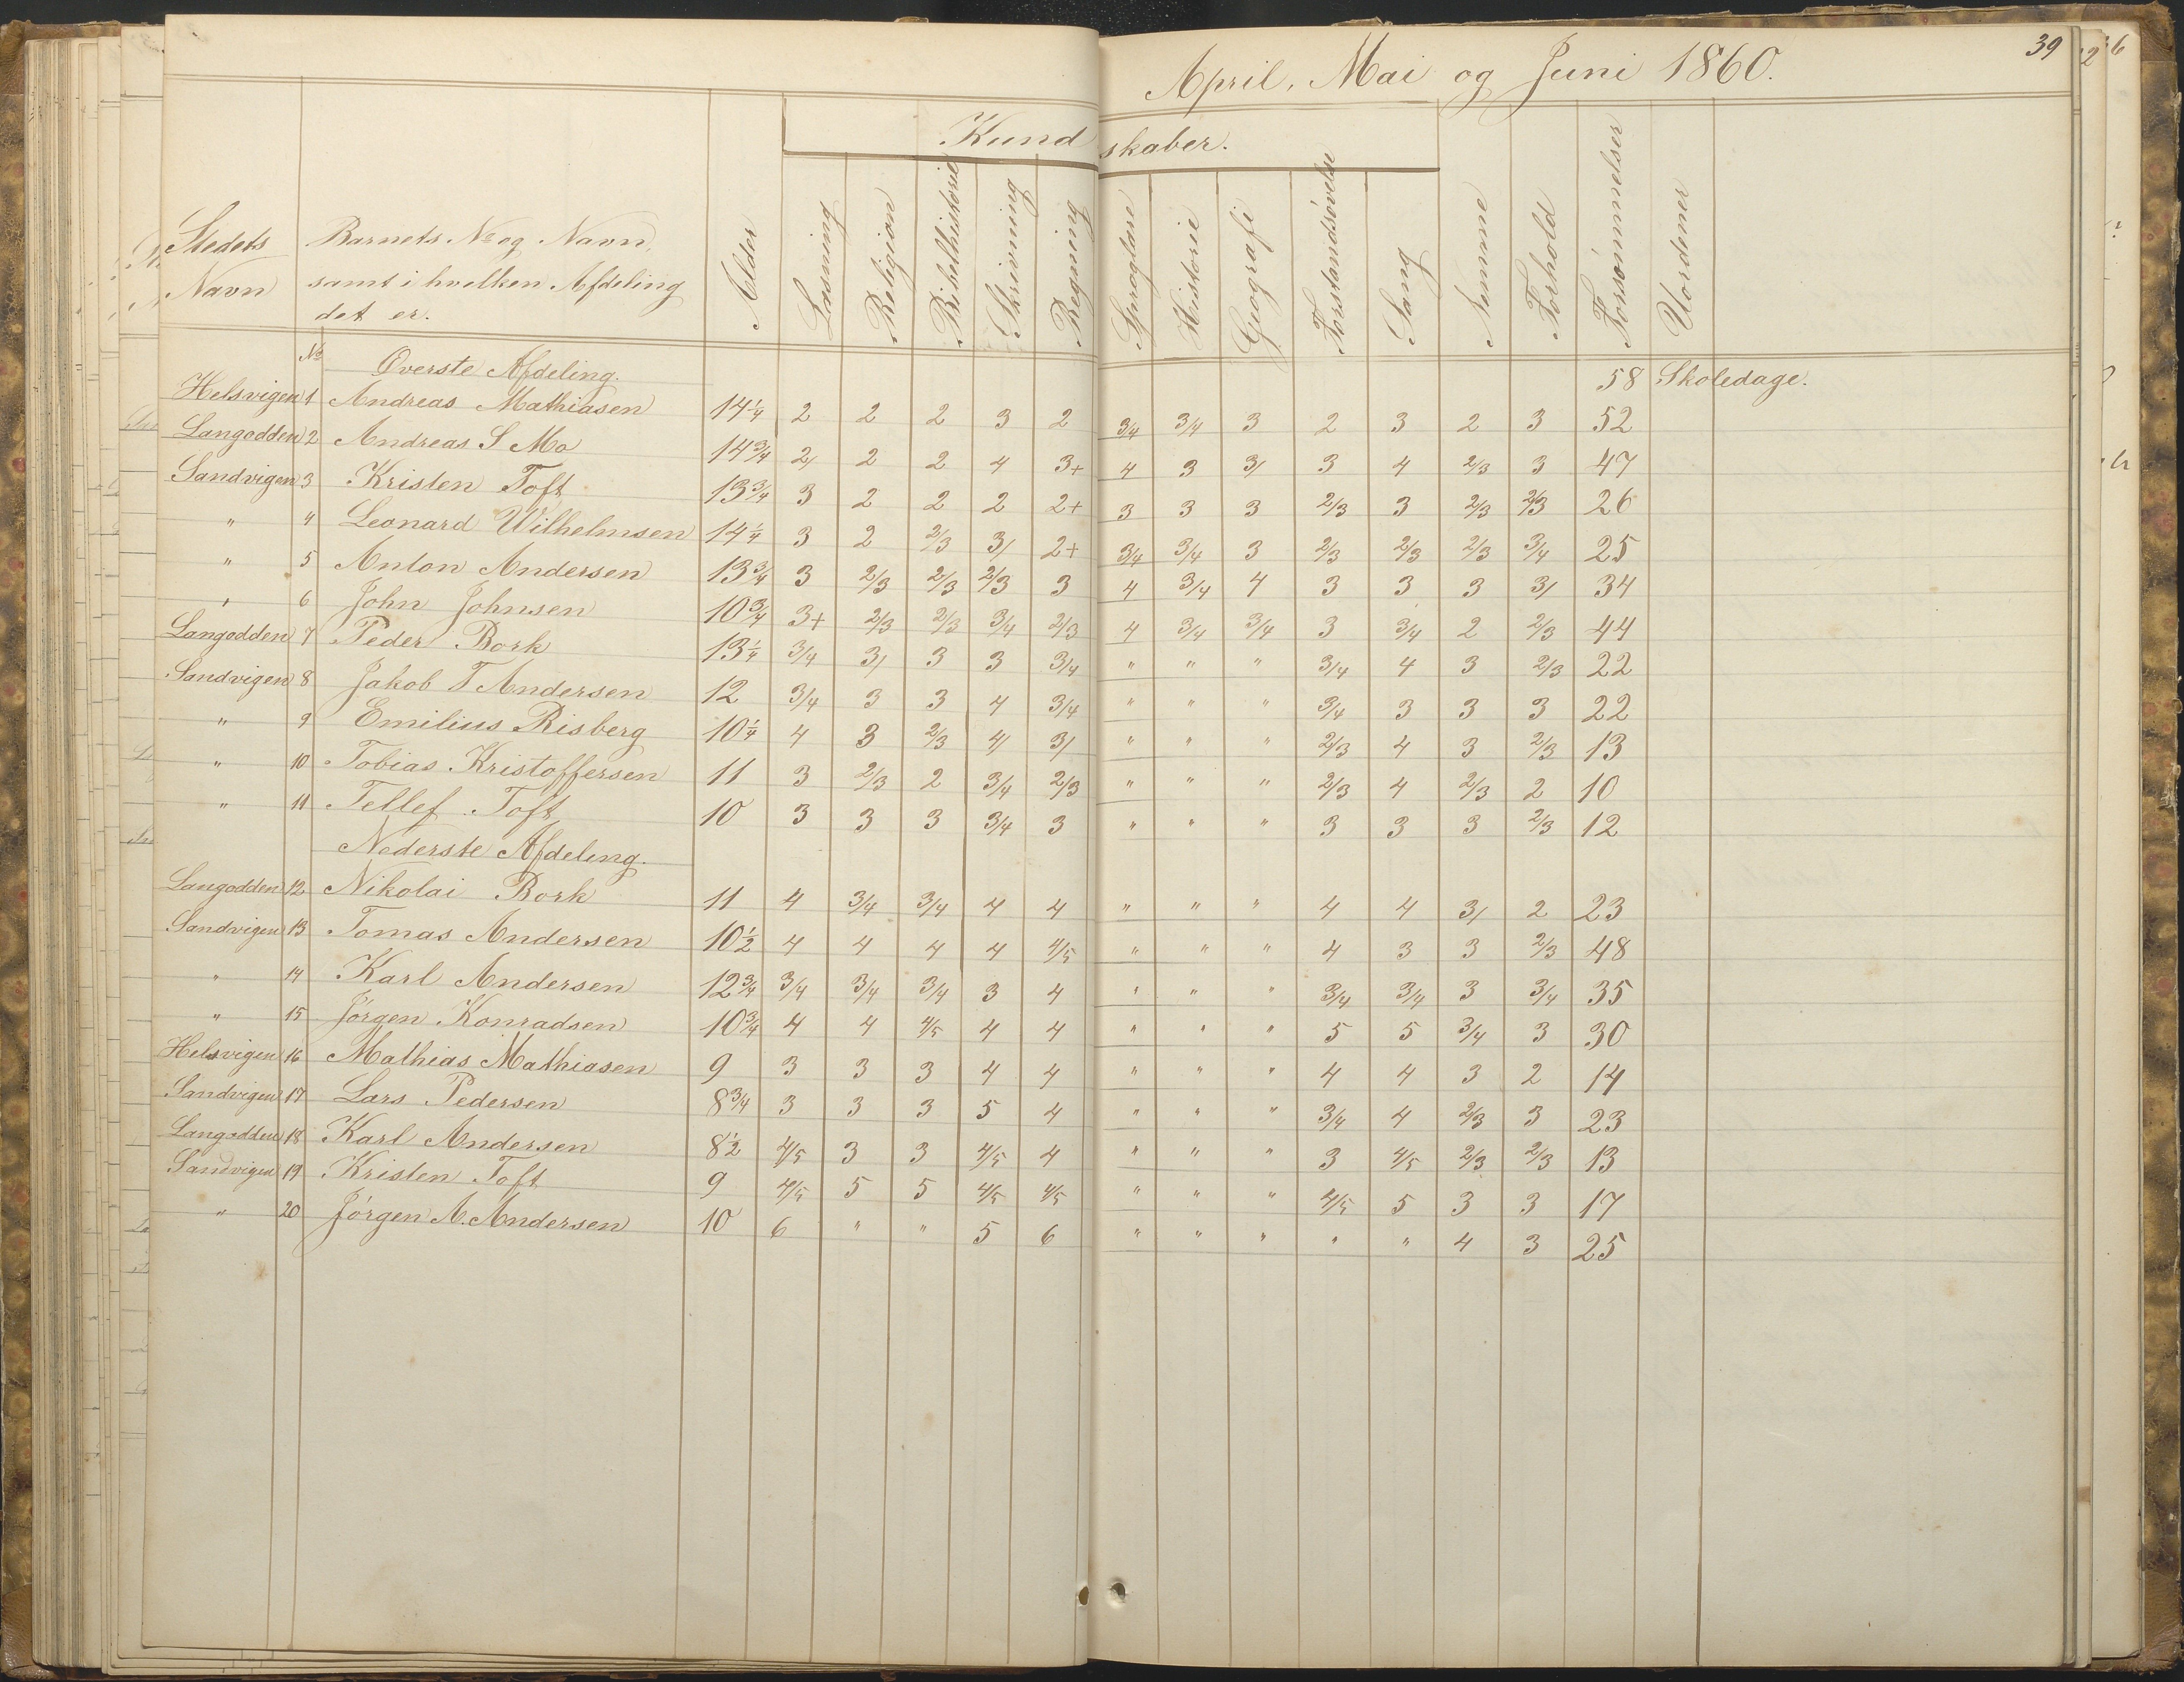 April, Mai og Juni 1860. 39
Kundskaber.
Stedets Navn | Barnets No og Navn, samt i hvilken Afdeling det er. | Alder | Læsning | Religion | Bibelhistorie | Skrivning | Regning | Sproglære | Historie | Geografi | Forstandsøvelse | Sang | Nemme | Forhold | Forsømmelser | Uordener
No Øverste Afdeling. 58 Skoledage.
Helsvigen 1 Andreas Mathiasen 14 1/4 2 2 2 3 2 3/4 3/4 3 2 3 2 3 52
Langodden 2 Andreas S Mo 14 3/4 2/ 2 2 4 3+ 4 3 3/ 3 4 2/3 3 47
Sandvigen 3 Kristen Toft 13 3/4 3 2 2 2 2+ 3 3 3 2/3 3 2/3 2/3 26
" 4 Leonard Wilhelmsen 14 1/4 3 2 2/3 3/ 2+ 3/4 3/4 3 2/3 2/3 2/3 3/4 25
" 5 Anton Andersen 13 3/4 3 2/3 2/3 2/3 3 4 3/4 4 3 3 3 3/ 34
" 6 John Johnsen 10 3/4 3+ 2/3 2/3 3/4 2/3 4 3/4 3/4 3 3/4 2 2/3 44
Langodden 7 Peder Bork 13 1/4 3/4 3/ 3 3 3/4 " " " 3/4 4 3 2/3 22
Sandvigen 8 Jakob T Andersen 12 3/4 3 3 4 3/4 " " " 3/4 3 3 3 22
" 9 Emilius Risberg 10 1/4 4 3 2/3 4/ 3/ " " " 2/3 4 3 2/3 13
" 10 Tobias Kristoffersen 11 3 2/3 2 3/4 2/3 " " " 2/3 4 2/3 2 10
" 11 Tellef Toft 10 3 3 3 3/4 3 " " " 3 3 3 2/3 12
Nederste Afdeling.
Langodden 12 Nikolai Bork 11 4 3/4 3/4 4 4 " " " 4 4 3/ 2 23
Sandvigen 13 Tomas Andersen 10 1/2 4 4 4 4 4/5 " " " 4 3 3 2/3 48
" 14 Karl Andersen 12 3/4 3/4 3/4 3/4 3 4 " " " 3/4 3/4 3 3/4 35
" 15 Jörgen Konradsen 10 3/4 4 4 4/5 4 4 " " " 5 5 3/4 3 30
Helsvigen 16 Mathias Mathiasen 9 3 3 3 4 4 " " " 4 4 3 2 14
Sandvigen 17 Lars Pedersen 8 3/4 3 3 3 5 4 " " " 3/4 4 2/3 3 23
Langodden 18 Karl Andersen 8 1/2 4/5 3 3 4/5 4 " " " 3 4/5 2/3 2/3 13
Sandvigen 19 Kristen Toft 9 4/5 5 5 4/5 4/5 " " " 4/5 5 3 3 17
" 20 Jörgen A. Andersen 10 6 " " 5 6 " " " " " 4 3 25